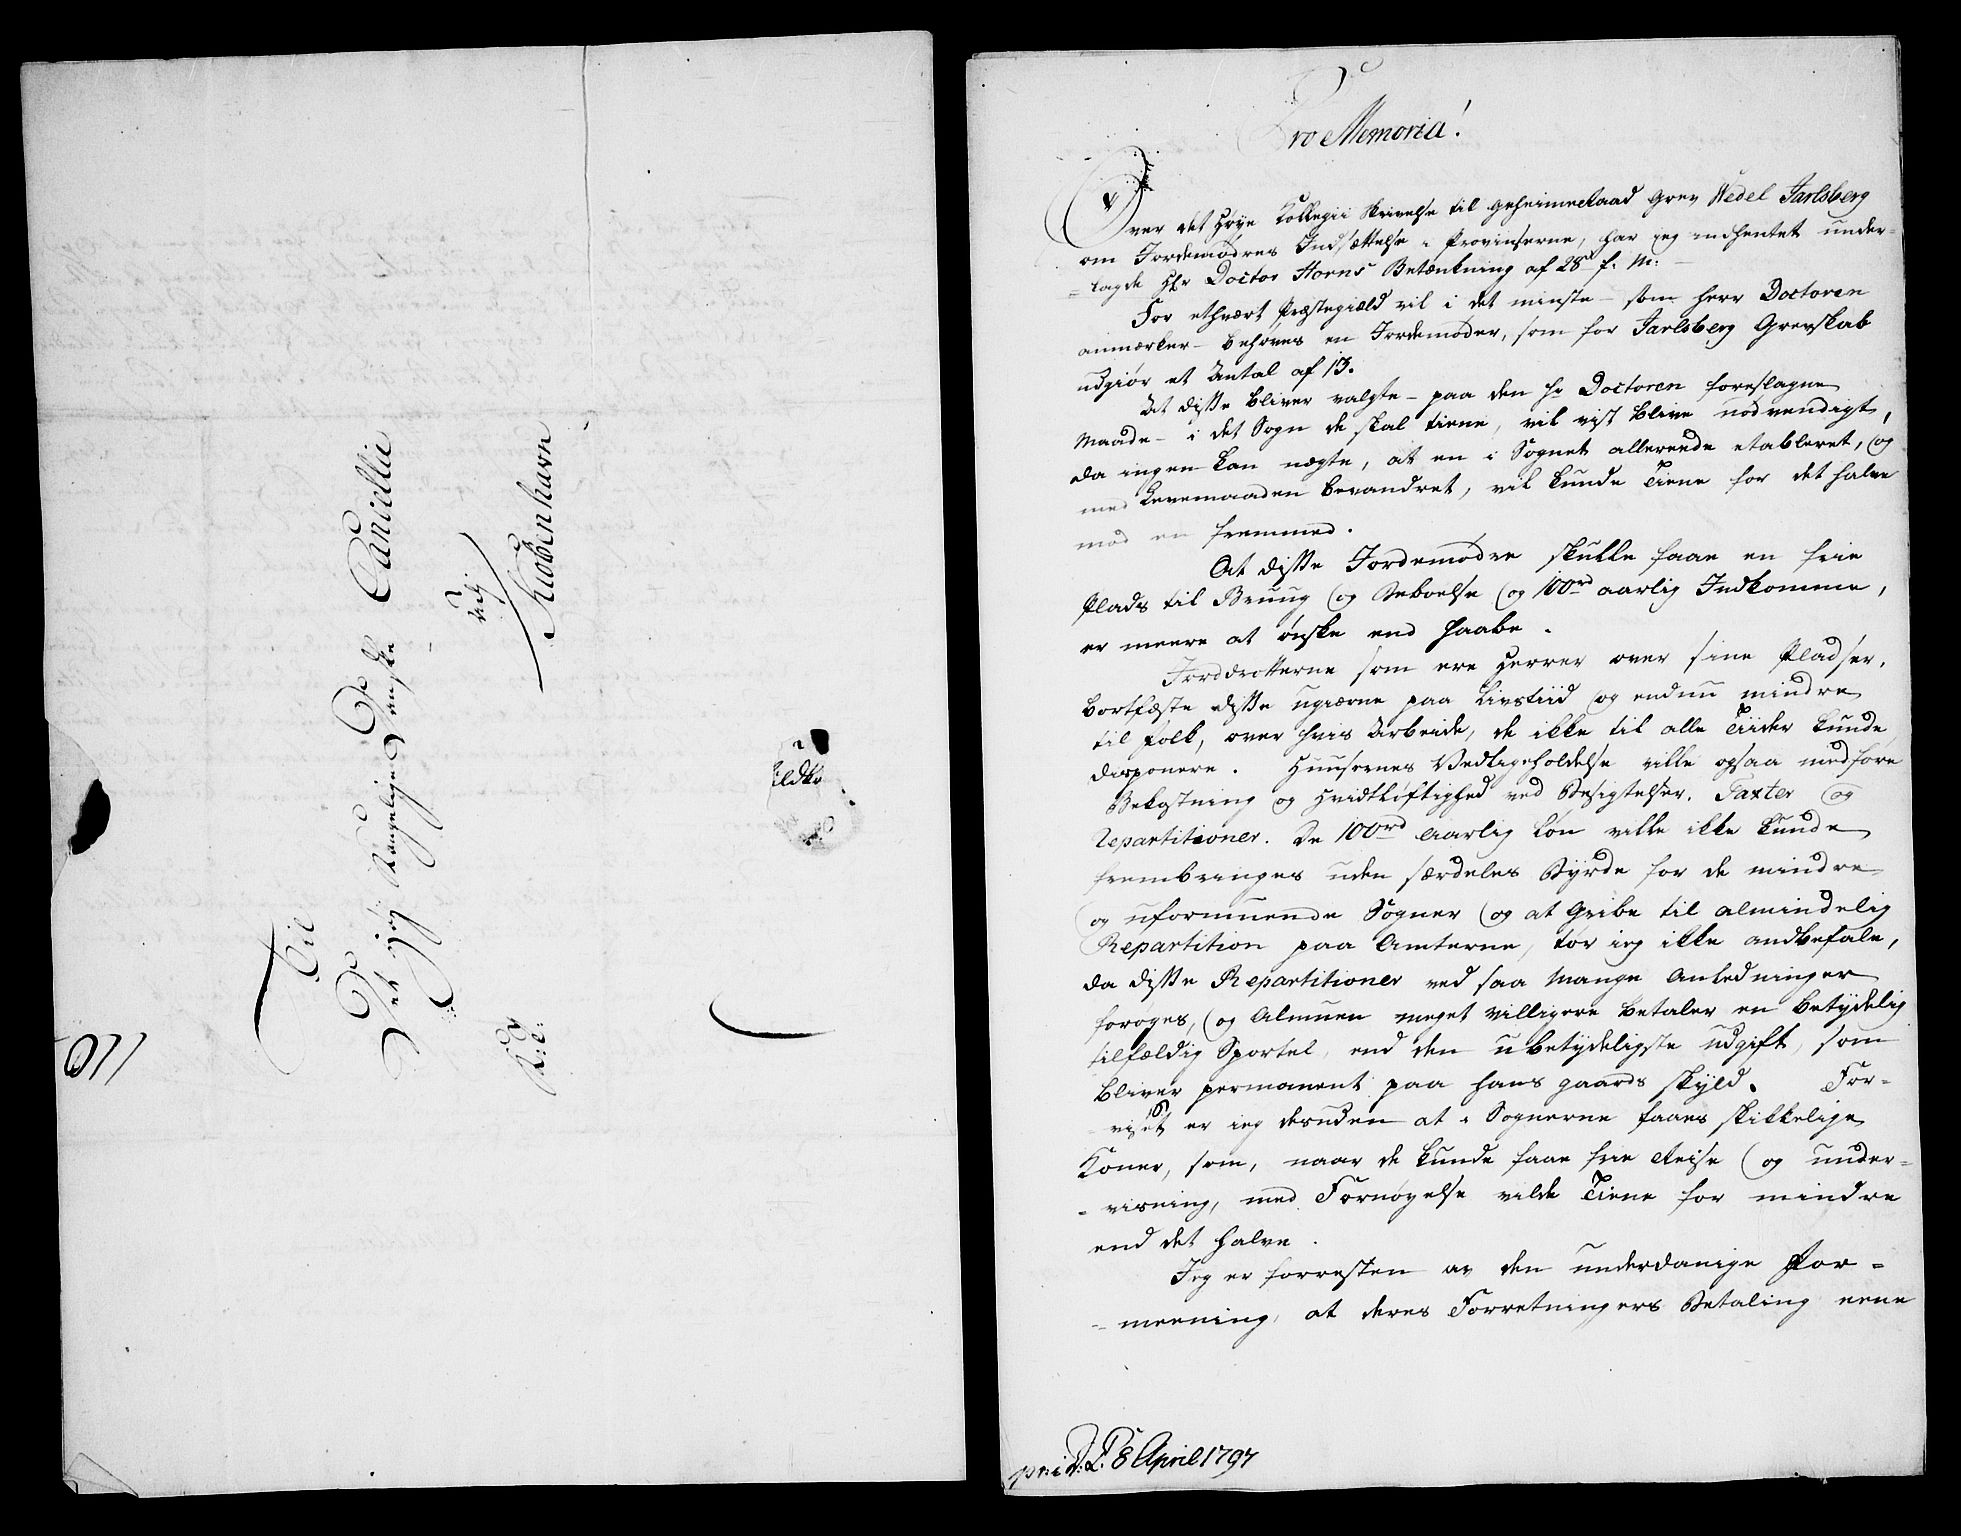 Til
Det høj Kongelige Danske Cancillie
vdj
Kiøbenhavn
R: C:
110
Pro Memoria!
Over det høye Collegii Skrivelse til Geheimeraad Grev Wedel Jarlsberg
om Jordemødres Indsættelse i Provinserne, har jeg indhentet under-
-lagde Hr Doctor Horns Betænkning af 28d f. M:
For ethvært Præstegiæld vil i det minste - som herr Doctoren
anmærker - behøves en Jordemoder, som for Jarlsberg Grevskab
udgiør et Antal af 13.
At disse bliver valgte - paa den Hr Doctoren foreslagne
Maade - i det Sogn de skal tiene, vil vist blive nødvendigt,
da ingen kan nægte, at en i Sognet allerende etableret, og
med Levemaaden bevandret, vil kunde tiene for det halve
mod en fremmed.
At disse Jordemødre skulle faae en frie
Plads til Bruug og Beboelse og 100rd aarlig Indkomme,
er meere at ønske end haabe.
Jorddrotterne som ere Herrer over sine Pladser,
bortfæste disse ugierne paa Livstiid og endnu mindre
til folk, over hvis Arbeide, de ikke til alle Tiider kunde
disponere. Huusernes Vedligeholdelse ville ogsaa medføre
Bekostning og Hvidtløftighed ved Besigtelser, Taxter og
Repartitioner. De 100rd aarlig Løn ville ikke kunde
frembringes uden særdeles Byrde for de mindre
og uformuende Sogner og at Gribe til almindelig
Repartition paa Amterne, tør ieg ikke andbefale,
da disse Repartitioner ved saa mange Anledninger
foroges, og Almuen meget villigere betaler en betydelig
tilfældig Sportel, end den ubetydeligste udgift, som
bliver permanent paa hans gaards skyld. For-
-viset er ieg desuden at i Sognerne faaes skikkelige
Koner, som, naar de kunde faae frie Reise og under-
-visning, med Fornøyelse vilde tiene for mindre
end det halve.
Jeg er forresten av den underdanige For-
-meening, at deres Forretningers Betaling eene
pr: i D: L. 8 April 1797